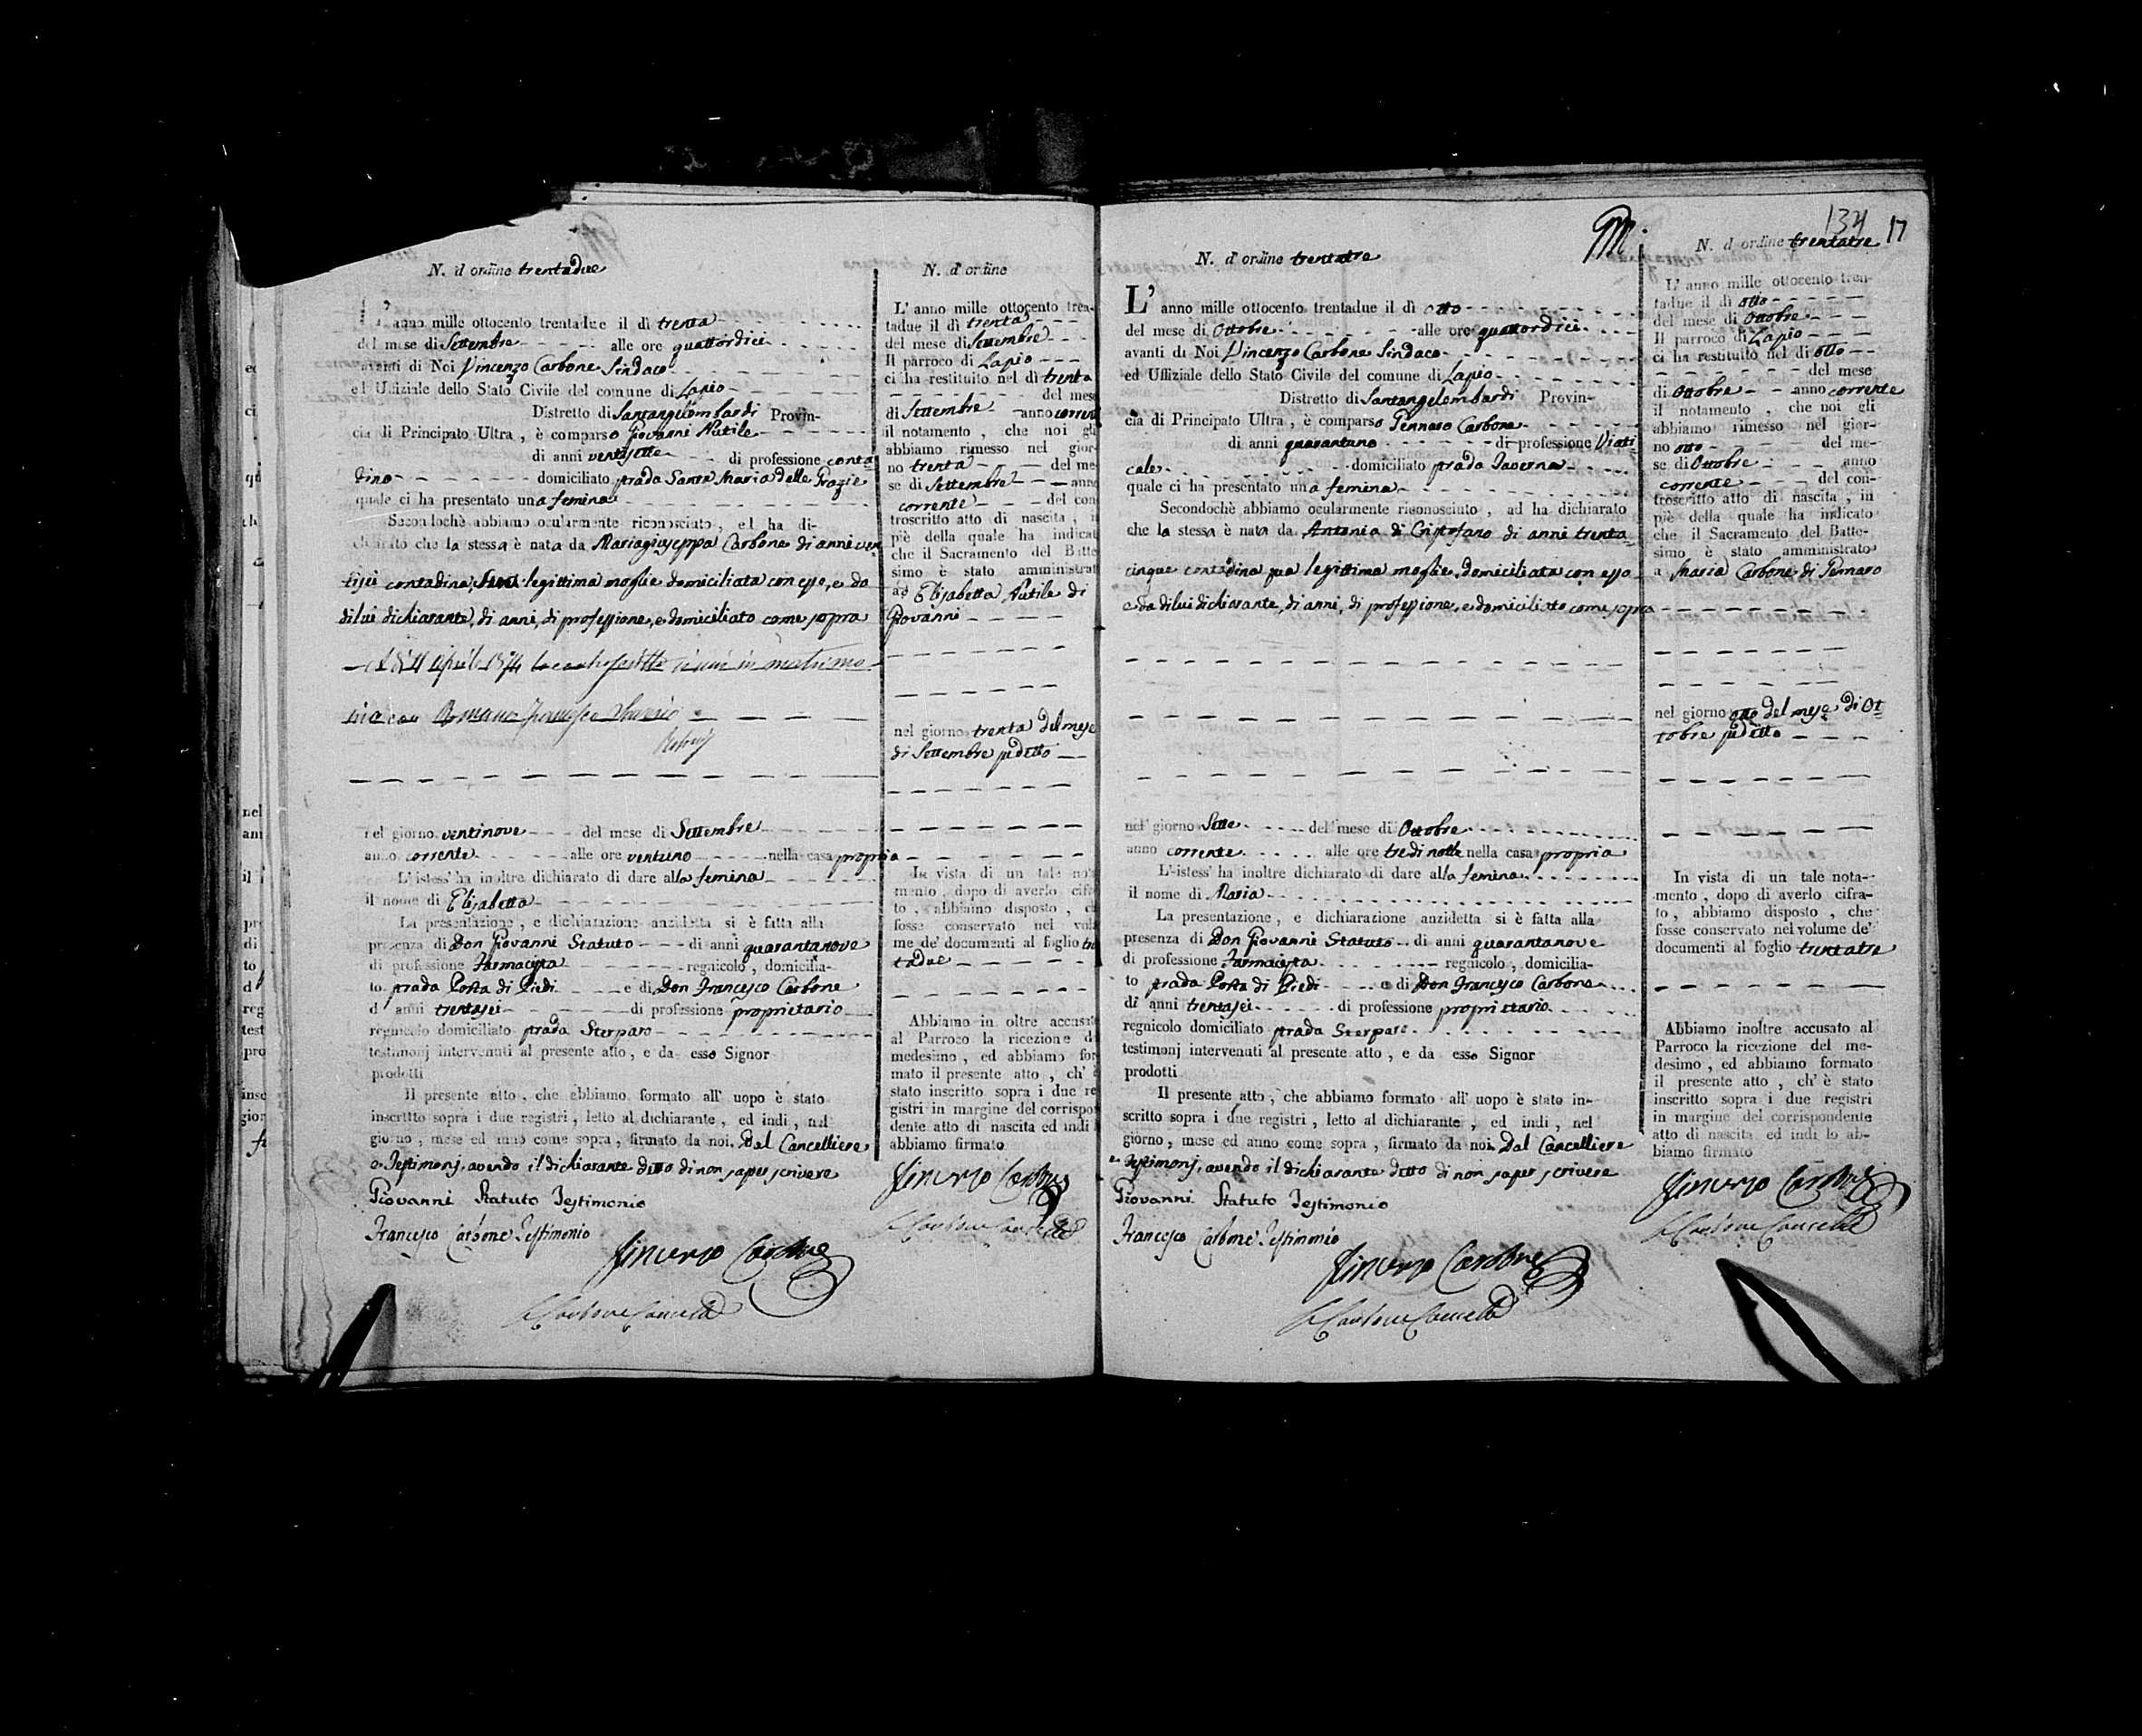 N. d'ordine trentadue
L'anno mille ottocento trentadue il dì trenta
del mese di Settembre alle ore quattordici
avanti di Noi Vincenzo Carbone Sindaco
ed Uffiziale dello Stato Civile del comune di Lapio
Distretto di Santangelombardi Provin-
cia di Principato Ultra, è comparso Giovanni Nutile
di anni ventisette di professione conta
dino domiciliato strada Santa Maria delle Grazie
quale ci ha presentato una femina
Secondochè abbiamo ocularmente riconosciuto, ed ha di-
chiarato che la stessa è nata da Mariagiuseppa Carbone di anni ven
tisei contadina, sua legittima moglie domiciliata con esso, e da
di lui dichiarante, di anni, di professione, e domiciliato come sopra
in matrimo
nio con Romano Francesco
nel giorno ventinove del mese di Settembre
anno corrente alle ore ventuno nella casa propria
L'istess' ha inoltre dichiarato di dare alla femina
il nome di Elisabetta
La presentazione, e dichiarazione anzidetta si è fatta alla
presenza di Don Giovanni Statuto di anni quarantanove
di professione Farmacista regnicolo, domicilia-
to strada Porta di Piedi e di Don Francesco Carbone
di anni trentasei di professione proprietario
regnicolo domiciliato strada Sterparo
testimonj intervenuti al presente atto, e da esso Signor
prodotti
Il presente atto, che abbiamo formato all' uopo è stato
inscritto sopra i due registri, letto al dichiarante, ed indi, nel
giorno, mese ed anno come sopra, firmato da noi. Dal Cancelliere
e Testimonj, avendo il dichiarante detto di non saper scrivere
Giovanni Statuto Testimonio
Francesco Carbone Testimonio
Vincenzo Carbone
Carbone Cancell
N. d'ordine
L'anno mille ottocento tren-
tadue il dì trenta
del mese di Settembre
Il parroco di Lapio
ci ha restituito nel dì trenta
del mese
di Settembre anno corrente
il notamento, che noi gli
abbiamo rimesso nel gior-
no trenta del me
se di Settembre anno
corrente del con
troscritto atto di nascita, in
piè della quale ha indicat
che il Sacramento del Batte
simo è stato amministrat
ad Elisabetta Nutile di
Giovanni
nel giorno trenta del mese
di Settembre sudetto
In vista di un tale no
mento, dopo di averlo cifr
to, abbiamo disposto, ch
fosse conservato nel volu
me de' documenti al foglio tren
tadue
Abbiamo in oltre accusato
al Parroco la ricezione d
medesimo, ed abbiamo for
mato il presente atto, ch' è
stato inscritto sopra i due re
gistri in margine del corrispon
dente atto di nascita ed indi
abbiamo firmato
Vincenzo Carbone
Carbone Cancell
134 17
N. d'ordine trentatre
L'anno mille ottocento trentadue il dì otto
del mese di Ottobre alle ore quattordici
avanti di Noi Vincenzo Carbone Sindaco
ed Uffiziale dello Stato Civile del comune di Lapio
Distretto di Santangelombardi Provin-
cia di Principato Ultra, è comparso Gennaro Carbone
di anni quarantuno di professione Viati
cale domiciliato strada Taverna
quale ci ha presentato una femina
Secondochè abbiamo ocularmente riconosciuto, ad ha dichiarato
che la stessa è nata da Antonia di Cristofano di anni trenta
cinque contadina sua legittima moglie, domiciliata con esso
e da di lui dichiarante, di anni, di professione, e domiciliato come sopra
nel giorno Sette del mese di Ottobre
anno corrente alle ore tre di notte nella casa propria
L'istess' ha inoltre dichiarato di dare alla femina
il nome di Maria
La presentazione, e dichiarazione anzidetta si è fatta alla
presenza di Don Giovanni Statuto di anni quarantanove
di professione Farmacista regnicolo, domicilia-
to strada Porta di Piedi e di Don Francesco Carbone
di anni trentasei di professione proprietario
regnicolo domiciliato strada Sterparo
testimonj intervenuti al presente atto, e da esso Signor
prodotti
Il presente atto, che abbiamo formato all' uopo è stato in-
scritto sopra i due registri, letto al dichiarante, ed indi, nel
giorno, mese ed anno come sopra, firmato da noi. Dal Cancelliere
e Testimonj, avendo il dichiarante detto di non saper scrivere
Giovanni Statuto Testimonio
Francesco Carbone Testimonio
Vincenzo Carbone
Carbone Cancell
N. d'ordine trentatre
L'anno mille ottocento tren-
tadue il dì otto
del mese di Ottobre
Il parroco di Lapio
ci ha restituito nel dì otto
del mese
di Ottobre anno corrente
il notamento, che noi gli
abbiamo rimesso nel gior-
no otto del me-
se di Ottobre anno
corrente del con-
troscritto atto di nascita, in
piè della quale ha indicato
che il Sacramento del Batte-
simo è stato amministrato
a Maria Carbone di Gennaro
nel giorno otto del mese di Ot
tobre sudetto
In vista di un tale nota-
mento, dopo di averlo cifra-
to, abbiamo disposto, che
fosse conservato nel volume de'
documenti al foglio trentatre
Abbiamo inoltre accusato al
Parroco la ricezione del me-
desimo, ed abbiamo formato
il presente atto, ch' è stato
inscritto sopra i due registri
in margine del corrispondente
atto di nascita ed indi lo ab-
biamo firmato
Vincenzo Carbone
Carbone Cancell